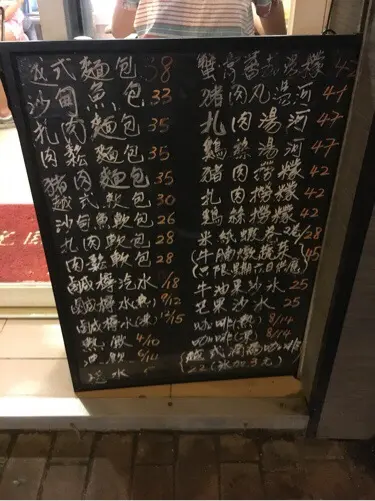 法式麵包 38
沙甸魚包 33
扎肉麵包 35
肉鬆麵包 35
豬肉麵包 35
越式軟包 30
沙甸魚軟包 26
扎肉軟包 28
肉鬆軟包 28
鹹檸汽水 /18
鹹檸水(熱) 9/12
鹹檸水(凍) 12/15
4/10
水
蟹膏蕃茄湯檬 47
豬肉丸湯河 47
扎肉湯河 47
鷄絲湯河 47
豬肉撈檬 42
扎肉撈檬 42
鷄絲撈檬 42
米紙卷 28
(牛腩燉蔬菜 45
(只限星期六日供應)
牛油果沙冰 25
芒果沙冰 25
咖啡(熱) 8/14
咖啡(凍) 8/14
(越式滴漏咖啡
22 (冰加3元)